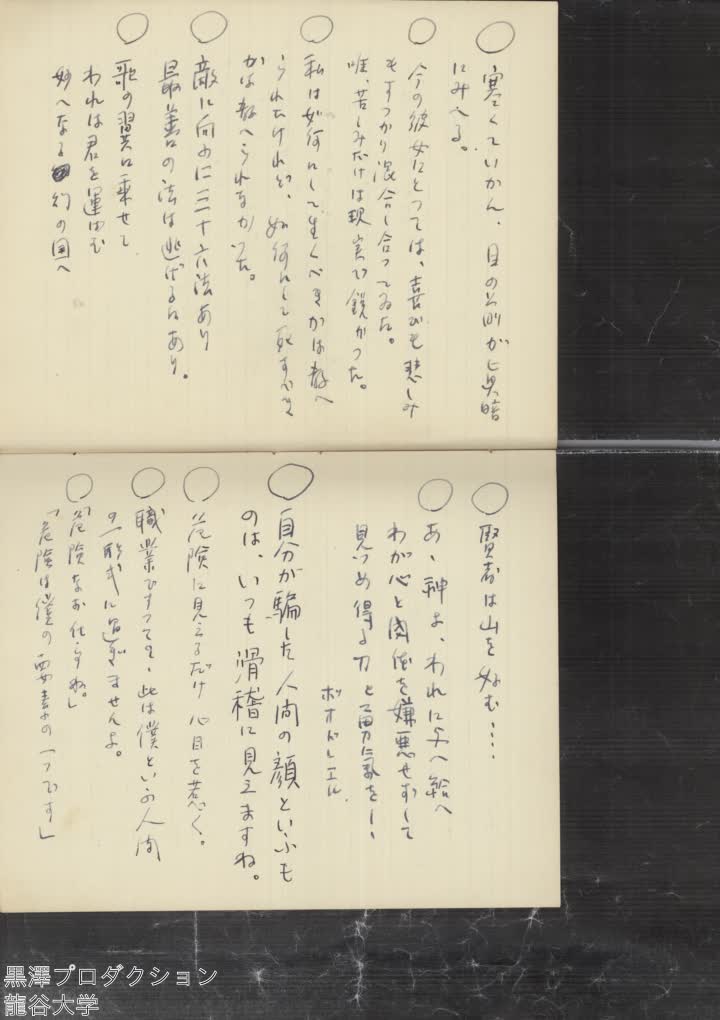 寒くていかん、目の前が真暗
にみえる。
今の彼女にとっては、喜びも悲しみ
もすつかり混合し合つてゐた。
唯、苦しみだけは現実で鋭かつた。
私は如何にして生くべきかは教へ
られたけれど、如何にして死すべき
かは教へられなかつた。
敵に向ふに三十六法あり
最善の法は逃げるにあり。
歌の翼に乗せて
われは君を運ばむ
妙へなる幻の国へ
賢者は山を好む‥‥
あゝ神よ、われに与へ給へ
わが心と肉体を嫌悪せずして
見つめ得る力と勇気を――
ボオドレエル
自分が騙した人間の顔といふも
のは、いつも滑稽に見えますね。
危険に見えるだけ 心目を惹く。
職業ですつて、此は僕といふ人間
の一形式に過ぎませんよ。
「危険なお仕事ね。」
「危険は僕の要素の一つです」
黒澤プロダクション
龍谷大学